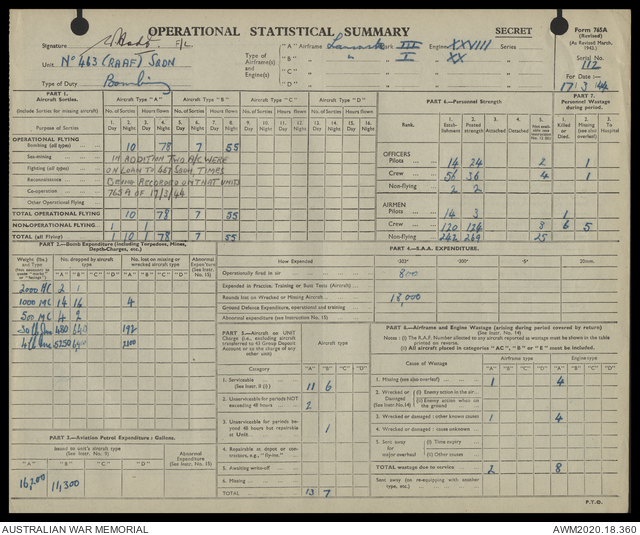 OPERATIONAL STATISTICAL SUMMARY
SECRET
Form 765A
(Revised)
(As Revised March, 1943.)
Serial No.
112
For Date :—
17/3/44
Signature
F/L
Unit Nº 463 (RAAF) SQDN
Type of Duty Bombing
Type of Airframe(s) and Engine(s)
"A" Airframe Lancaster Mark III Engine XXVIII Series
"B" " " I XX
"C"
"D"
PART 1.
Aircraft Sorties.
(Include Sorties for missing aircraft)
Aircraft Type "A"
Aircraft Type "B"
Aircraft Type "C"
Aircraft Type "D"
No. of Sorties Hours flown No. of Sorties Hours flown No. of Sorties Hours flown No. of Sorties Hours flown
1. 2. 3. 4. 5. 6. 7. 8. 9. 10. 11. 12. 13. 14. 15. 16.
Purpose of Sorties Day Night Day Night Day Night Day Night Day Night Day Night Day Night Day Night
OPERATIONAL FLYING
Bombing (all types) 10 78 7 55
Sea-mining
Fighting (all types)
Reconnaissance
Co-operation
Other Operational Flying
IN ADDITION TWO A/C WERE
ON LOAN TO 467 SQDN TIMES
BEING RECORDED ON THAT UNITS
765A OF 17/3/44
TOTAL OPERATIONAL FLYING 10 78 7 55
NON-OPERATIONAL FLYING 1 1
TOTAL (all flying) 1 10 1 78 7 55
PART 2.—Bomb Expenditure (including Torpedoes, Mines, Depth-Charges, etc.)
Weight (lbs.) and Type
No. dropped by aircraft type
No. loss on missing or wrecked aircraft type
Abnormal Expenditure (See Instr. No. 15)
"A" "B" "C" "D" "A" "B" "C" "D"
2000 HC 2 1
1000 MC 14 16 4
500 MC 4 2
30 lb Inc 480 640 192
4 lb Inc 5250 2100
PART 3.—Aviation Petrol Expenditure : Gallons.
based on unit's aircraft type
(See Instr. No. 9)
Abnormal Expenditure (See Instr. No. 15)
"A" "B" "C" "D"
16,200 11,300
PART 6.—Personnel Strength
PART 7.
Personnel Wastage during period.
Rank.
1. Establishment 2. Posted strength 3. Attached 4. Detached 5. 1. Killed or Died. 2. Missing (see also overleaf) 3. To Hospital
OFFICERS
Pilots 14 24 2 1
Crew 56 36 4 1
Non-flying 2 2
AIRMEN
Pilots 14 3 1
Crew 120 124 8 6 5
Non-flying 242 269 25
PART 4.—S.A.A. EXPENDITURE.
How Expended .303" .300" .5" 20mm.
Operationally fired in air 800
Expended in Practice, Training or Butt Tests (Aircraft)
Rounds lost on Wrecked or Missing Aircraft 18,000
Ground Defence Expenditure, operational and training
Abnormal expenditure (see Instruction No. 15)
PART 5.—Aircraft on UNIT Charge (i.e., excluding aircraft transferred to 43 Group Deposit Account or to the charge of any other unit)
Aircraft type
Category "A" "B" "C" "D"
1. Serviceable (See Instr. 8 (i)) 11 6
2. Unserviceable for periods NOT exceeding 48 hours 2
3. Unserviceable for periods beyond 48 hours but repairable at Unit 1
4. Repairable at depot or contractors, e.g., "fly-ins."
5. Awaiting write-off
6. Missing
TOTAL 13 7
PART 8.—Airframe and Engine Wastage (arising during period covered by return)
(See Instr. No. 14)
Notes : (i) The R.A.F. Number allotted to any aircraft reported as wastage must be shown in the table printed on reverse.
(ii) All aircraft placed in categories "AC", "B" or "E" must be included.
Cause of Wastage
Airframe type Engine type
"A" "B" "C" "D" "A" "B" "C" "D"
1. Missing (see also overleaf) 1 4
2. Wrecked or Damaged (See Instr. No.14)
(i) Enemy action in the air
(ii) Enemy action when on the ground
3. Wrecked or damaged : other known causes 1 4
4. Wrecked or damaged : cause unknown
5. Sent away for major overhaul
(i) Time expiry
(ii) Other Causes
TOTAL wastage due to service 2 8
Sent away (as no re-equipping with another type, etc.)
P.T.O.
AUSTRALIAN WAR MEMORIAL
AWM2020.18.360